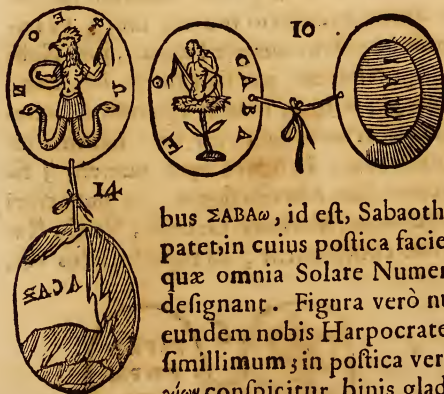 10
CABA
ΙΑΩ
14
bus ΣΑΒΑω, id eſt, Sabaoth
patet, in cuius poſtica facie
quæ omnia Solare Numen
deſignant. Figura verò nu
eundem nobis Harpocrate
ſimillimum; in poſtica ver
conſpicitur, binis glad